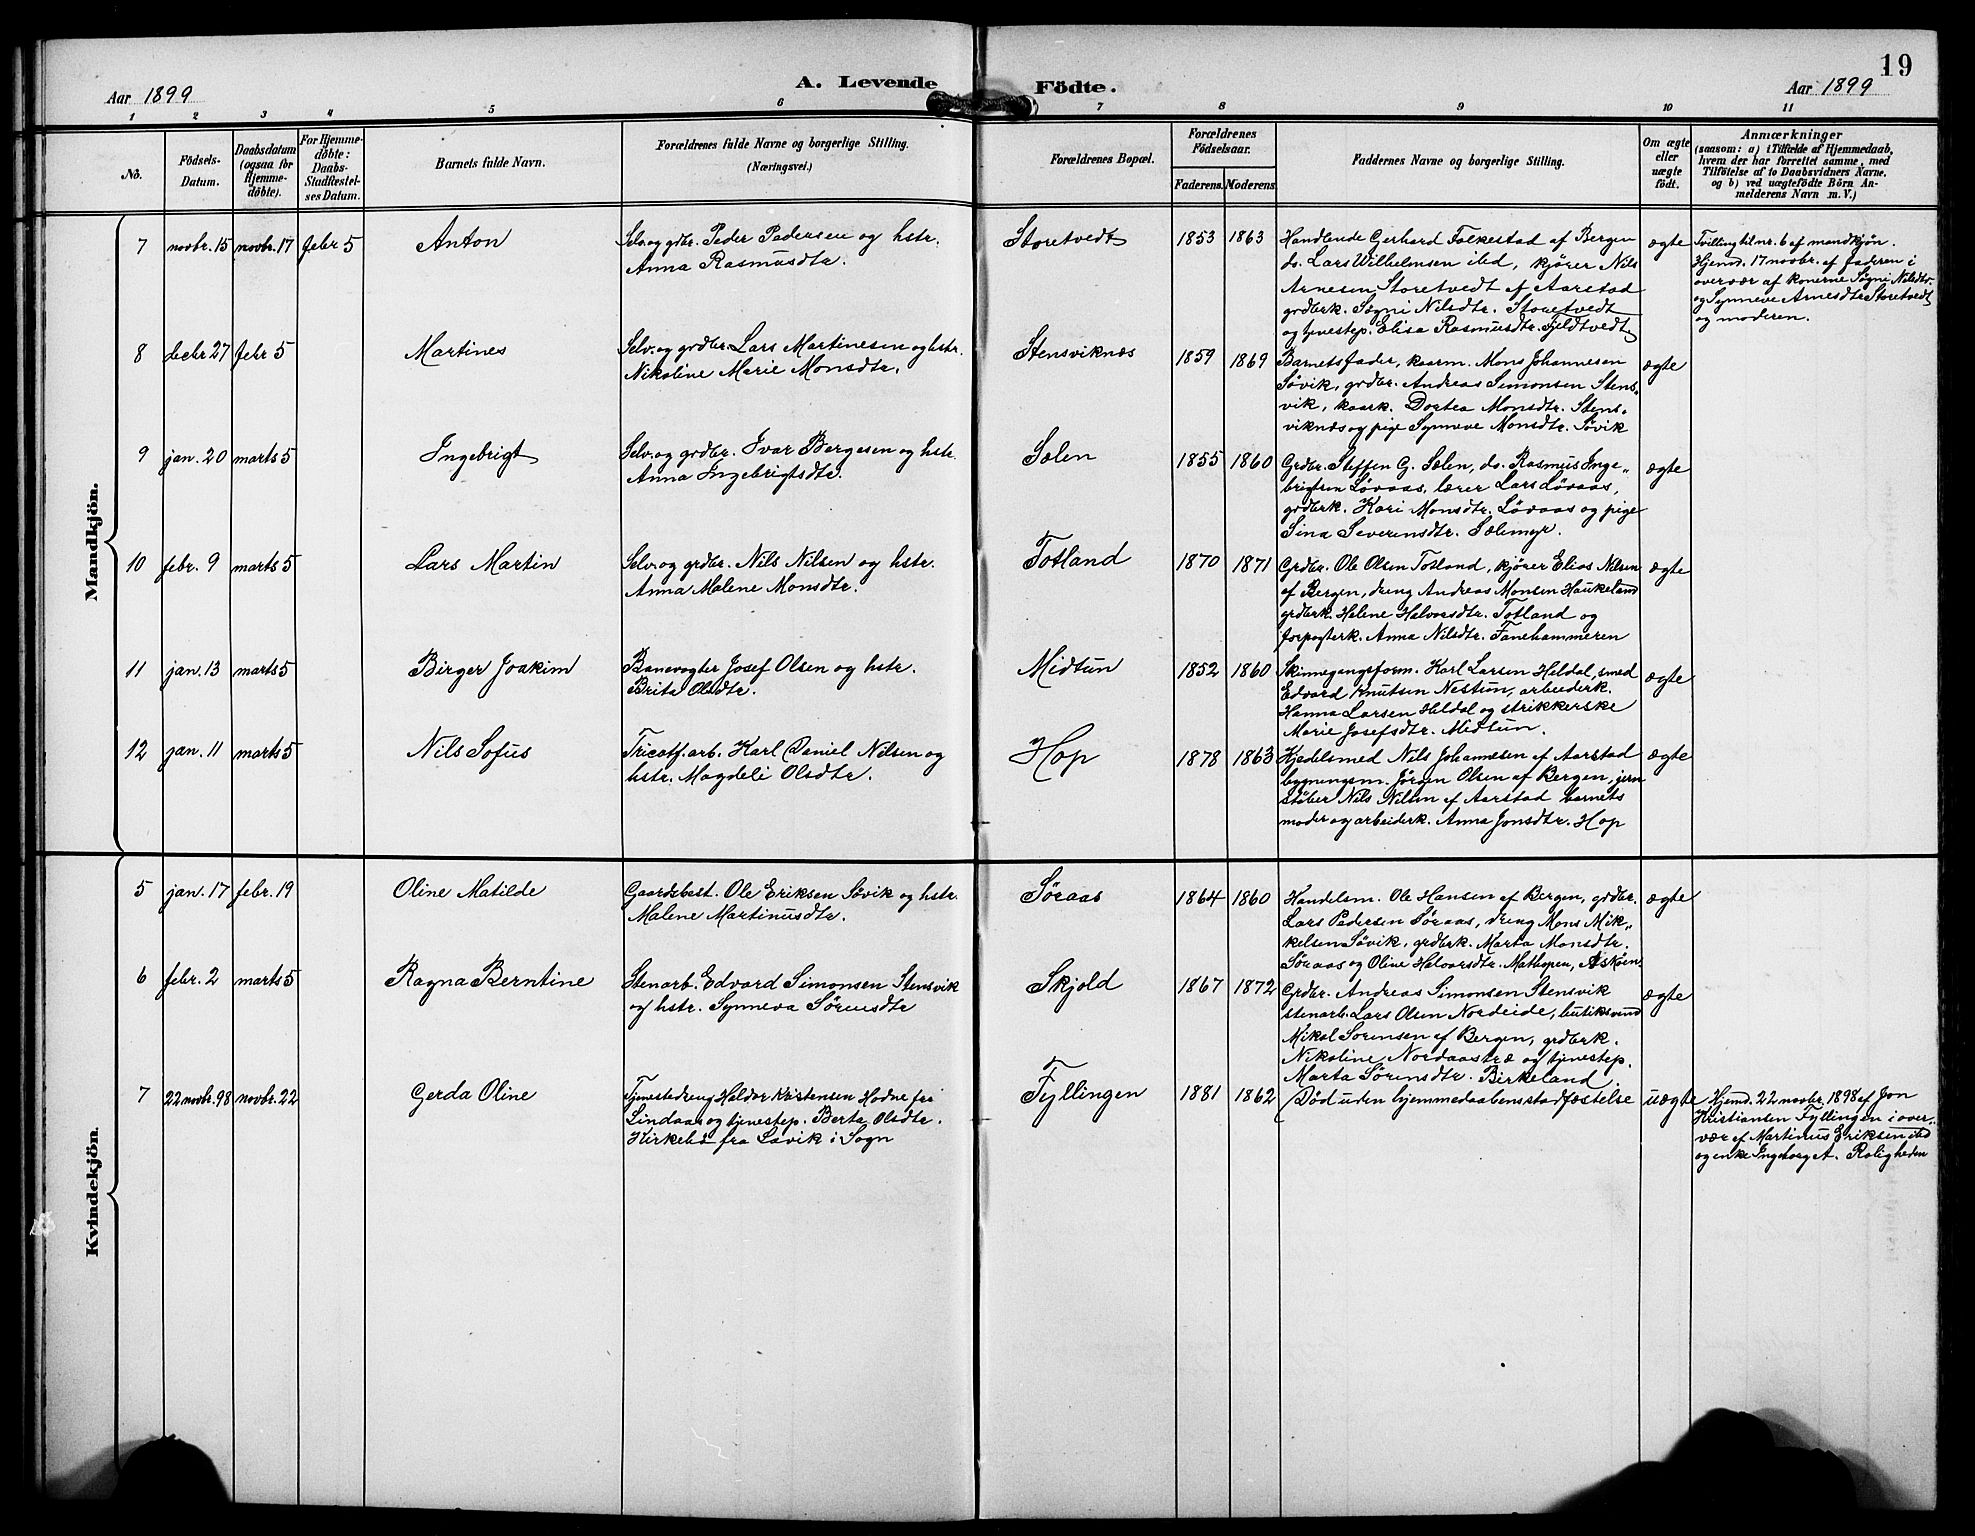 19
Aar 1899
A. Levende Födte.
Aar 1899
1 2 3 4 5 6 7 8 9 10 11
No.
Födsels-
Datum.
Daabsdatum
(ogsaa for
Hjemme-
döbte).
For Hjemme-
döbte:
Daabs-
Stadfæstel-
ses Datum.
Barnets fulde Navn.
Forældrenes fulde Navne og borgerlige Stilling.
(Næringsvei.)
Forældrenes Bopæl.
Forældrenes
Födselsaar.
Faderens. Moderens.
Faddernes Navne og borgerlige Stilling.
Om ægte
eller
uægte
födt.
Anmærkninger
(saasom: a) i Tilfælde af Hjemmedaab,
hvem der har forrettet samme, med
Tilföielse af to Daabsvidners Navne.
og b) ved uægtefödte Börn An-
melderens Navn m. V.)
Mandkjön.
7 novbr. 15 novbr. 17 febr 5 Anton
Selv. og grdbr. Peder Pedersen og hstr.
Anna Rasmusdtr.
Storetvedt 1853 1863
Handlende Gerhard Falkestad af Bergen
do. Lars Wilhelmsen ibd, kjører Nils
Arnesen Storetvedt af Aarstad
grdbrk. Søgni Nilsdtr. Storetvedt
og tjenestep. Elisa Rasmusdtr. Fjeldtvedt
ægte
Tvilling til nr. 6 af mandkjøn.
Hjemd. 17 novbr. af faderen i
overvær af konerne Søgni Nilsdtr.
og Synneve Arnesdtr. Storetvedt
og moderen.
8 decbr 27 febr 5 Martines
Selv. og grdbr. Lars Martinesen og hstr.
Nikoline Marie Monsdtr.
Stensviknæs 1859 1869
Barnets fader, kaarm. Mons Johannesen
Søvik, grdbr. Andreas Simonsen Stens„
vik, kaark. Dortea Monsdtr. Stens„
viknæs og pige Synneve Monsdtr. Søvik
ægte
9 jan. 20 marts 5 Ingebrigt
Selv. og grdbr. Ivar Bergesen og hstr.
Anna Ingebrigtsdtr.
Sælen 1855 1860
Grdbr. Steffen G. Sælen, do. Rasmus Inge„
brigtsen Løvaas, lærer Lars Løvaas,
grdbrk. Kari Monsdtr. Løvaas og pige
Sina Severinsdtr. Sælemyr.
ægte
10 febr. 9 marts 5 Lars Martin
Selv. og grdbr. Nils Nilsen og hstr.
Anna Malene Monsdtr.
Totland 1870 1871
Grdbr. Ole Olsen Totland, kjører Elias Nilsen
af Bergen, dreng Andreas Monsen Haukeland
grdbrk. Helene Halvorsdtr. Totland og
forpagterk. Anna Nilsdtr. Fanehammeren
ægte
11 jan. 13 marts 5 Birger Joakim
Banevogter Josef Olsen og hstr.
Brita Olsdtr.
Midtun 1852 1860
Skinnegangsform. Karl Larsen Heldal, smed
Edvard Knutsen Nestun, arbeiderk.
Hanna Larsen Heldal og strikkerske
Marie Josefsdtr. Midtun.
ægte
12 jan. 11 marts 5 Nils Sofus
Tricotf.arb. Karl Daniel Nilsen og
hstr. Magdeli Olsdtr.
Hop 1878 1863
Kjedelsmed Nils Johannesen af Aarstad
bygningsm. Jörgen Olsen af Bergen, jern
støber Nils Nilsen af Aarstad barnets
moder og arbeiderk. Anna Jonsdtr. Hop
ægte
Kvindekjön.
5 jan. 17 febr. 19 Oline Matilde
Gaardsbest. Ole Eriksen Søvik og hstr.
Malene Martinusdtr.
Søraas 1864 1860
Handelsm. Ole Hansen af Bergen, grdbr.
Lars Pedersen Søraas, dreng Mons Mik„
kelsen Søvik, grdbrk. Marta Monsdtr.
Søraas og Oline Halvorsdtr. Mathopen, Askøen.
ægte
6 febr. 2 marts 5 Ragna Berntine
Stenarb. Edvard Simonsen Stensvik
og hstr. Synneva Sørensdtr
Skjold 1867 1872
Grdbr. Andreas Simonsen Stensvik
stenarb. Lars Olsen Nordeide, butiksvend
Mikal Sorensen af Bergen, grdbrk.
Nikoline Nordaastræ og tjenestep.
Marta Sørensdtr. Birkeland.
ægte
7 22 novbr. 98 novbr. 22 Gerda Oline
Tjenestedreng Haldor Kristensen Hodne fra
Lindaas og tjenestep. Berta Olsdtr.
Kirkebø fra Lavik i Sogn
Fyllingen 1881 1862
Død uden hjemmedaabensstadfæstelse
uægte
Hjemd. 22 novbr. 1898 af Jon
Kristiansen Fyllingen i over„
vær af Martinus Eriksen ibd
og enke Ingeborg A. Roligheden